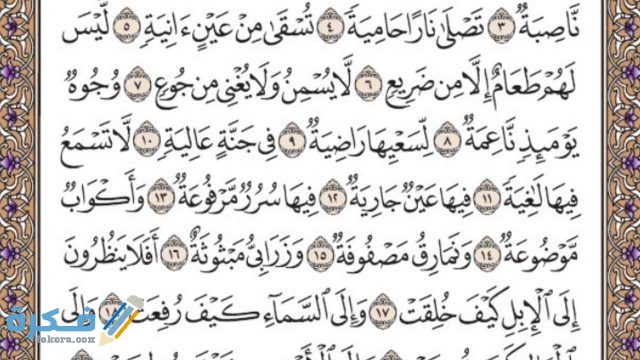 نَّاصِبَةٌ ٣ تَصْلَىٰ نَارًا حَامِيَةً ٤ تُسْقَىٰ مِنْ عَيْنٍ ءَانِيَةٍ ٥ لَّيْسَ
لَهُمْ طَعَامٌ إِلَّا مِن ضَرِيعٍ ٦ لَّا يُسْمِنُ وَلَا يُغْنِى مِن جُوعٍ ٧ وُجُوهٌ
يَوْمَئِذٍ نَّاعِمَةٌ ٨ لِّسَعْيِهَا رَاضِيَةٌ ٩ فِى جَنَّةٍ عَالِيَةٍ ١٠ لَّا تَسْمَعُ
فِيهَا لَٰغِيَةً ١١ فِيهَا عَيْنٌ جَارِيَةٌ ١٢ فِيهَا سُرُرٌ مَّرْفُوعَةٌ ١٣ وَأَكْوَابٌ
مَّوْضُوعَةٌ ١٤ وَنَمَارِقُ مَصْفُوفَةٌ ١٥ وَزَرَابِىُّ مَبْثُوثَةٌ ١٦ أَفَلَا يَنظُرُونَ
إِلَى الْإِبِلِ كَيْفَ خُلِقَتْ ١٧ وَإِلَى السَّمَآءِ كَيْفَ رُفِعَتْ ١٨ وَإِلَى
فكرة
fokera.com